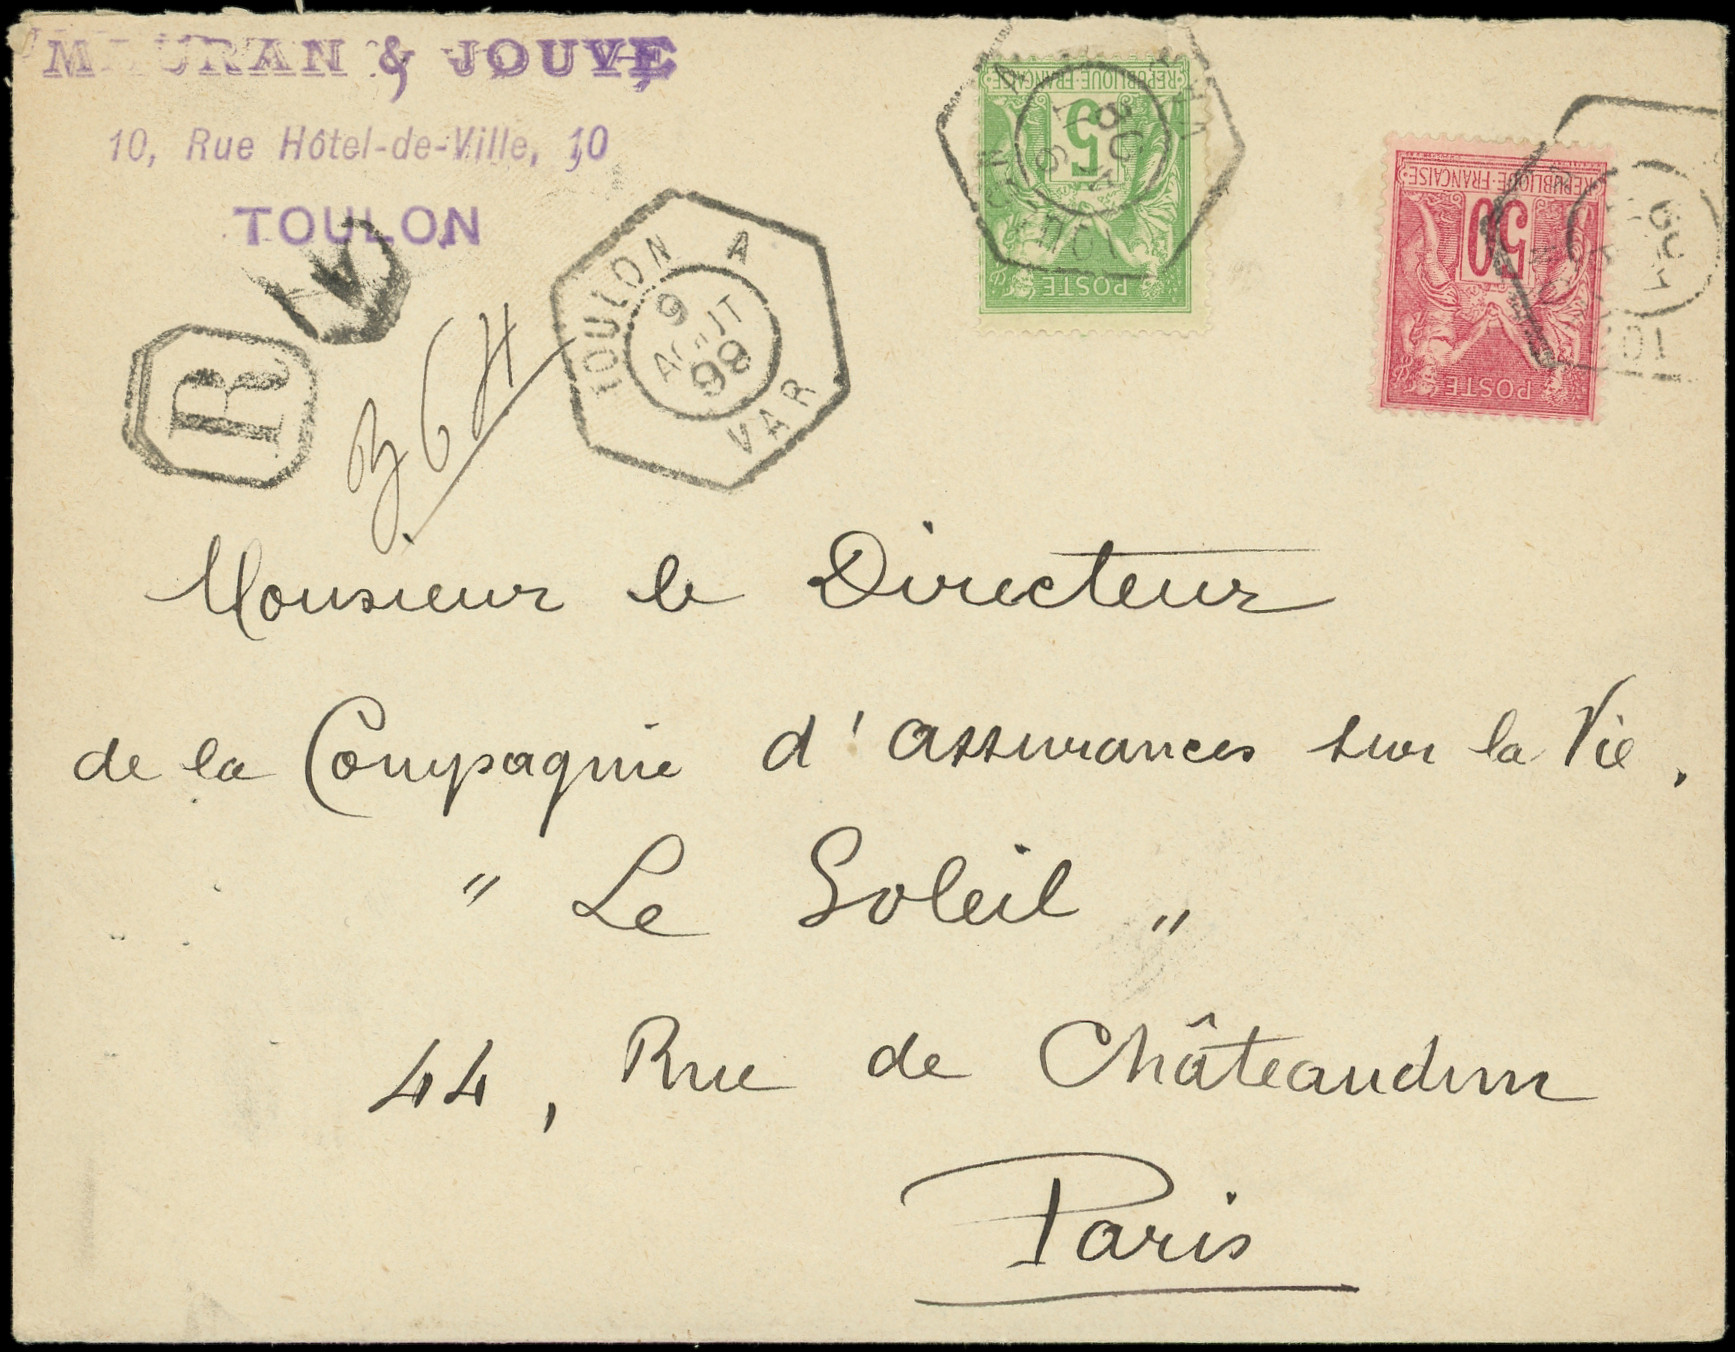 MAURAN & JOUVE
10, Rue Hôtel-de-Ville, 10
TOULON
R
A
364
TOULON A
9
AOUT
98
VAR
RÉPUBLIQUE FRANÇAISE
5
POSTE
RÉPUBLIQUE FRANÇAISE
50
POSTE
Monsieur le Directeur
de la Compagnie d'assurances sur la Vie,
" Le Soleil "
44, Rue de Châteaudun
Paris